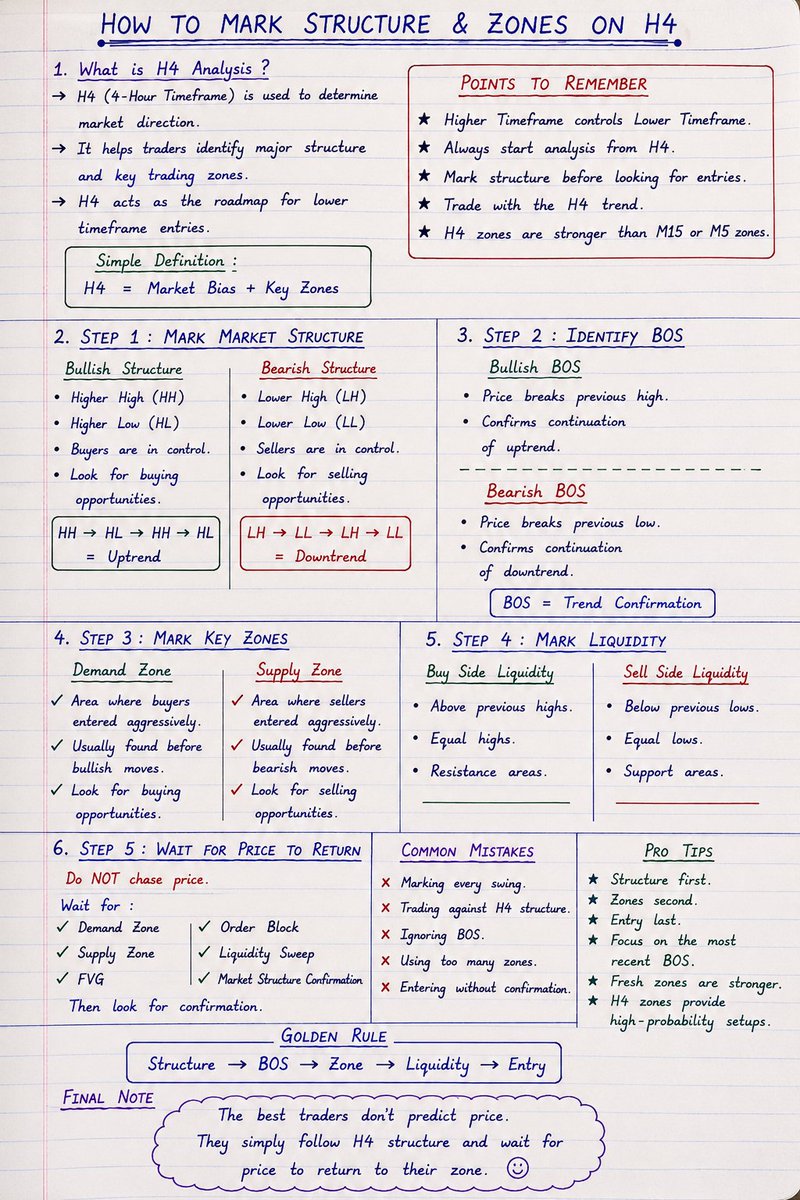 HOW TO MARK STRUCTURE & ZONES ON H4
1. What is H4 Analysis ?
→ H4 (4-Hour Timeframe) is used to determine
market direction.
→ It helps traders identify major structure
and key trading zones.
→ H4 acts as the roadmap for lower
timeframe entries.
Simple Definition :
H4 = Market Bias + Key Zones
POINTS TO REMEMBER
★ Higher Timeframe controls Lower Timeframe.
★ Always start analysis from H4.
★ Mark structure before looking for entries.
★ Trade with the H4 trend.
★ H4 zones are stronger than M15 or M5 zones.
2. STEP 1 : MARK MARKET STRUCTURE
Bullish Structure
• Higher High (HH)
• Higher Low (HL)
• Buyers are in control.
• Look for buying
opportunities.
HH → HL → HH → HL
= Uptrend
Bearish Structure
• Lower High (LH)
• Lower Low (LL)
• Sellers are in control.
• Look for selling
opportunities.
LH → LL → LH → LL
= Downtrend
3. STEP 2 : IDENTIFY BOS
Bullish BOS
• Price breaks previous high.
• Confirms continuation
of uptrend.
Bearish BOS
• Price breaks previous low.
• Confirms continuation
of downtrend.
BOS = Trend Confirmation
4. STEP 3 : MARK KEY ZONES
Demand Zone
✓ Area where buyers
entered aggressively.
✓ Usually found before
bullish moves.
✓ Look for buying
opportunities.
Supply Zone
✓ Area where sellers
entered aggressively.
✓ Usually found before
bearish moves.
✓ Look for selling
opportunities.
5. STEP 4 : MARK LIQUIDITY
Buy Side Liquidity
• Above previous highs.
• Equal highs.
• Resistance areas.
Sell Side Liquidity
• Below previous lows.
• Equal lows.
• Support areas.
6. STEP 5 : WAIT FOR PRICE TO RETURN
Do NOT chase price.
Wait for :
✓ Demand Zone
✓ Supply Zone
✓ FVG
✓ Order Block
✓ Liquidity Sweep
✓ Market Structure Confirmation
Then look for confirmation.
COMMON MISTAKES
✗ Marking every swing.
✗ Trading against H4 structure.
✗ Ignoring BOS.
✗ Using too many zones.
✗ Entering without confirmation.
PRO TIPS
★ Structure first.
★ Zones second.
★ Entry last.
★ Focus on the most
recent BOS.
★ Fresh zones are stronger.
★ H4 zones provide
high-probability setups.
GOLDEN RULE
Structure → BOS → Zone → Liquidity → Entry
FINAL NOTE
The best traders don't predict price.
They simply follow H4 structure and wait for
price to return to their zone. ☺